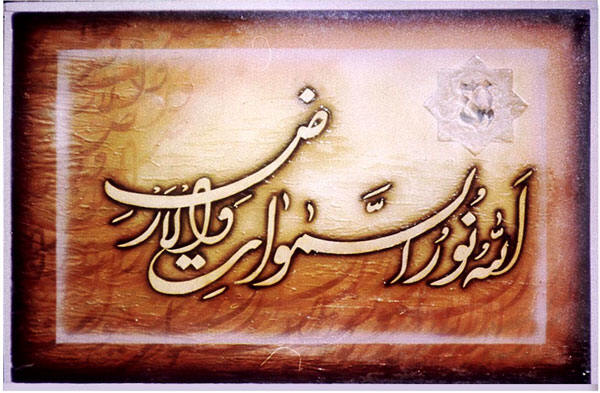 اَللهُ نُورُ السَّمٰوٰاتِ وَالْاَرْضِ